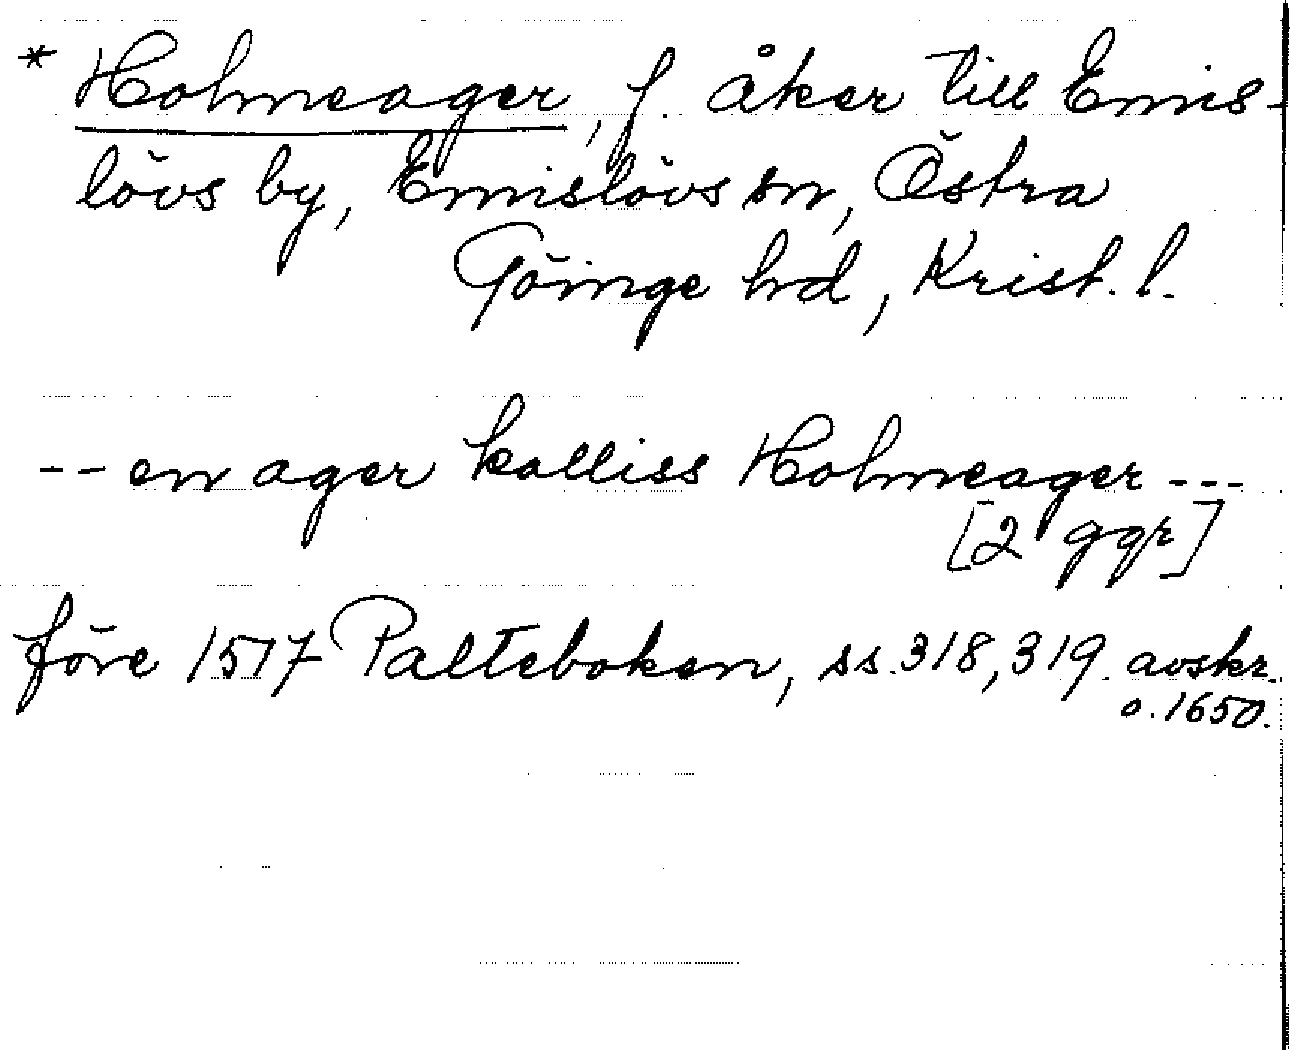 * Holmeager, f. åker till Emis-
lövs by, Emislövs sn, Östra
Göinge hd, Krist. l.
-- en ager kalliss Holmeager ---
[2 ggr]
före 1517 Palteboken, ss. 318, 319. avskr.
o. 1650.